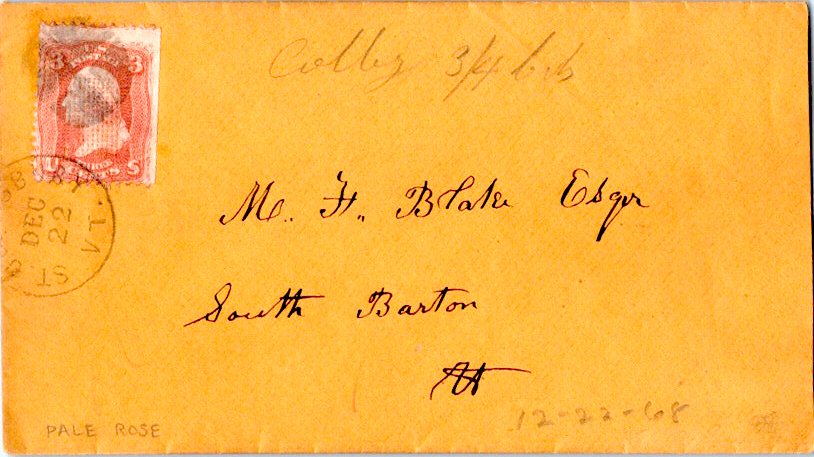 U.S. POSTAGE
3 3
U S
Colby 3/4
DEC
22
ST.
M. H. Blake Esqr
South Barton
Vt
12-22-68
PALE ROSE